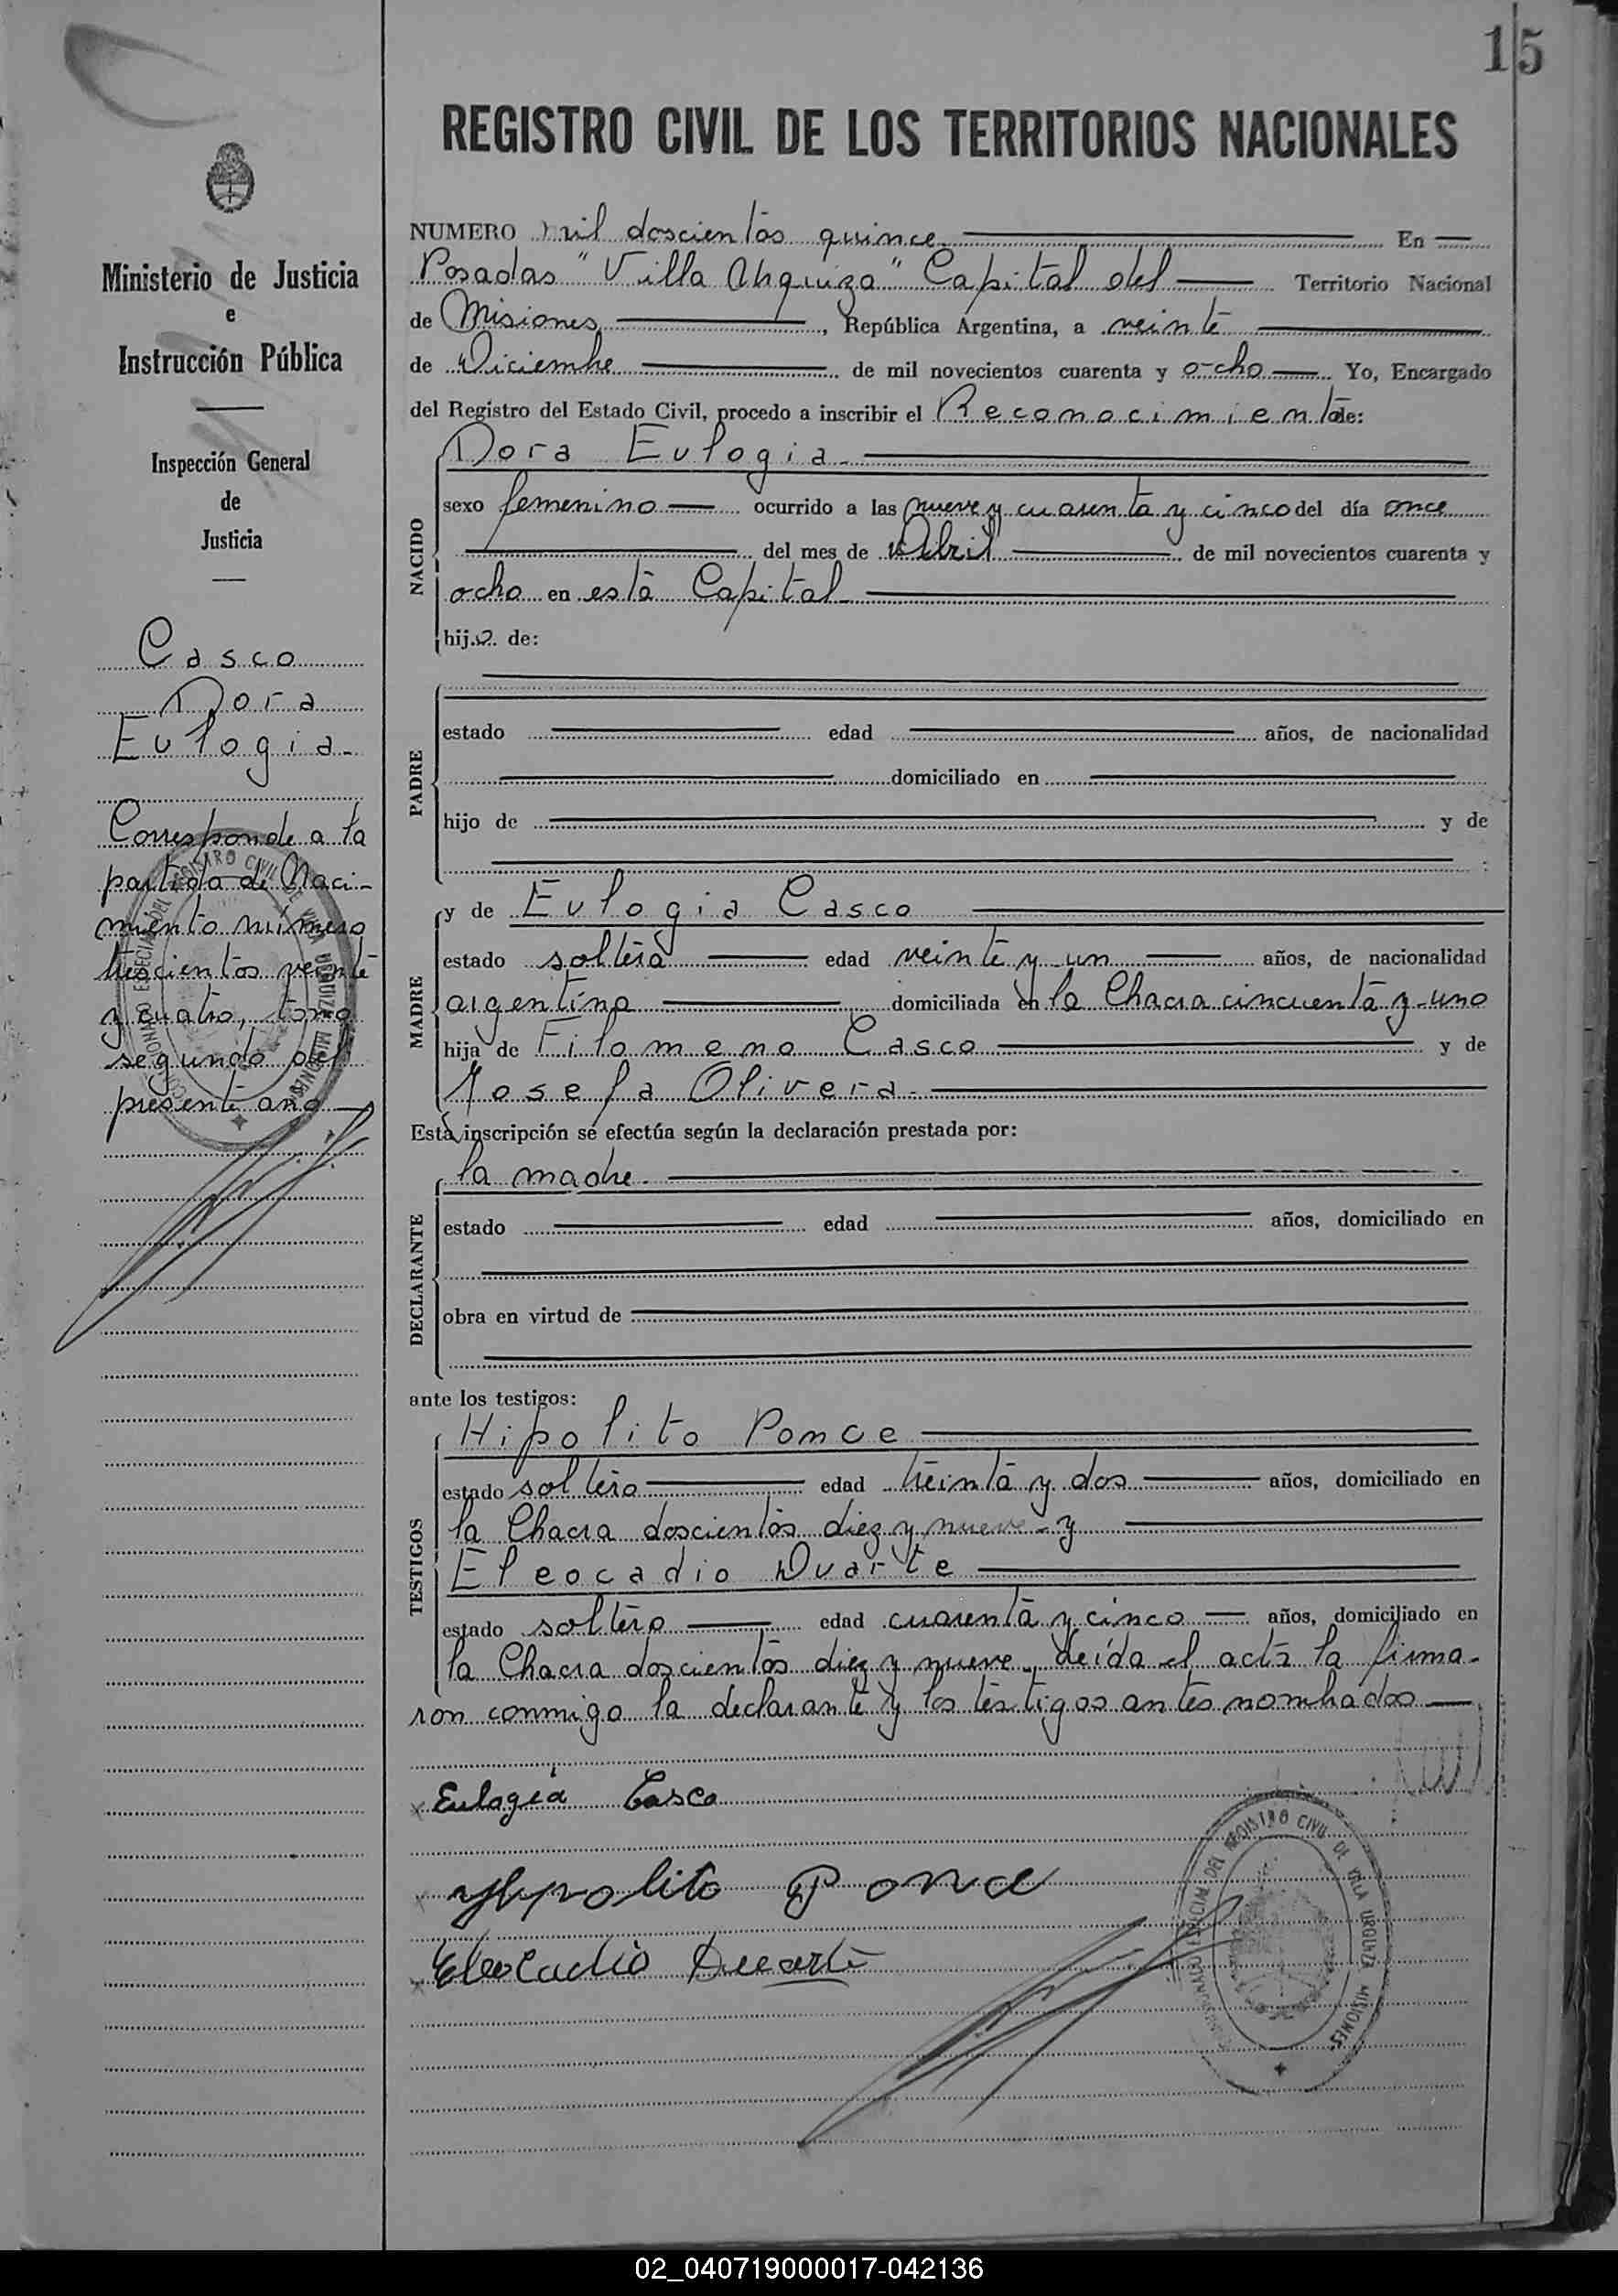 15
REGISTRO CIVIL DE LOS TERRITORIOS NACIONALES
Ministerio de Justicia
e
Instrucción Pública
Inspección General
de
Justicia
Casco
Dora
Eulogia
Corresponde a la
partida de Naci-
miento número
trescientos veinte
y cuatro, tomo
segundo del
presente año
NUMERO mil doscientos quince En
Posadas "Villa Urquiza" Capital del Territorio Nacional
de Misiones, República Argentina, a veinte
de Diciembre de mil novecientos cuarenta y ocho Yo, Encargado
del Registro del Estado Civil, procedo a inscribir el Reconocimiento de:
NACIDO
Dora Eulogia
sexo femenino ocurrido a las nueve y cuarenta y cinco del día once
del mes de Abril de mil novecientos cuarenta y
ocho en esta Capital
hija de:
PADRE
estado edad años, de nacionalidad
domiciliado en
hijo de y de
:
MADRE
y de Eulogia Casco
estado soltera edad veinte y un años, de nacionalidad
argentina domiciliada en la Chacra cincuenta y uno
hija de Filomeno Casco y de
Josefa Olivera
Esta inscripción se efectúa según la declaración prestada por:
DECLARANTE
la madre
estado edad años, domiciliado en
obra en virtud de
ante los testigos:
TESTIGOS
Hipolito Ponce
estado soltero edad treinta y dos años, domiciliado en
la Chacra doscientos diez y nueve - y
Eleocadio Duarte
estado soltero edad cuarenta y cinco años, domiciliado en
la Chacra doscientos diez y nueve. Leída el acta la firma-
ron conmigo la declarante y los testigos antes nombrados
Eulogia Casco
Hypolito Ponce
Eleocadio Duarte
REGISTRO CIVIL DE VILLA URQUIZA MISIONES
02_040719000017-042136